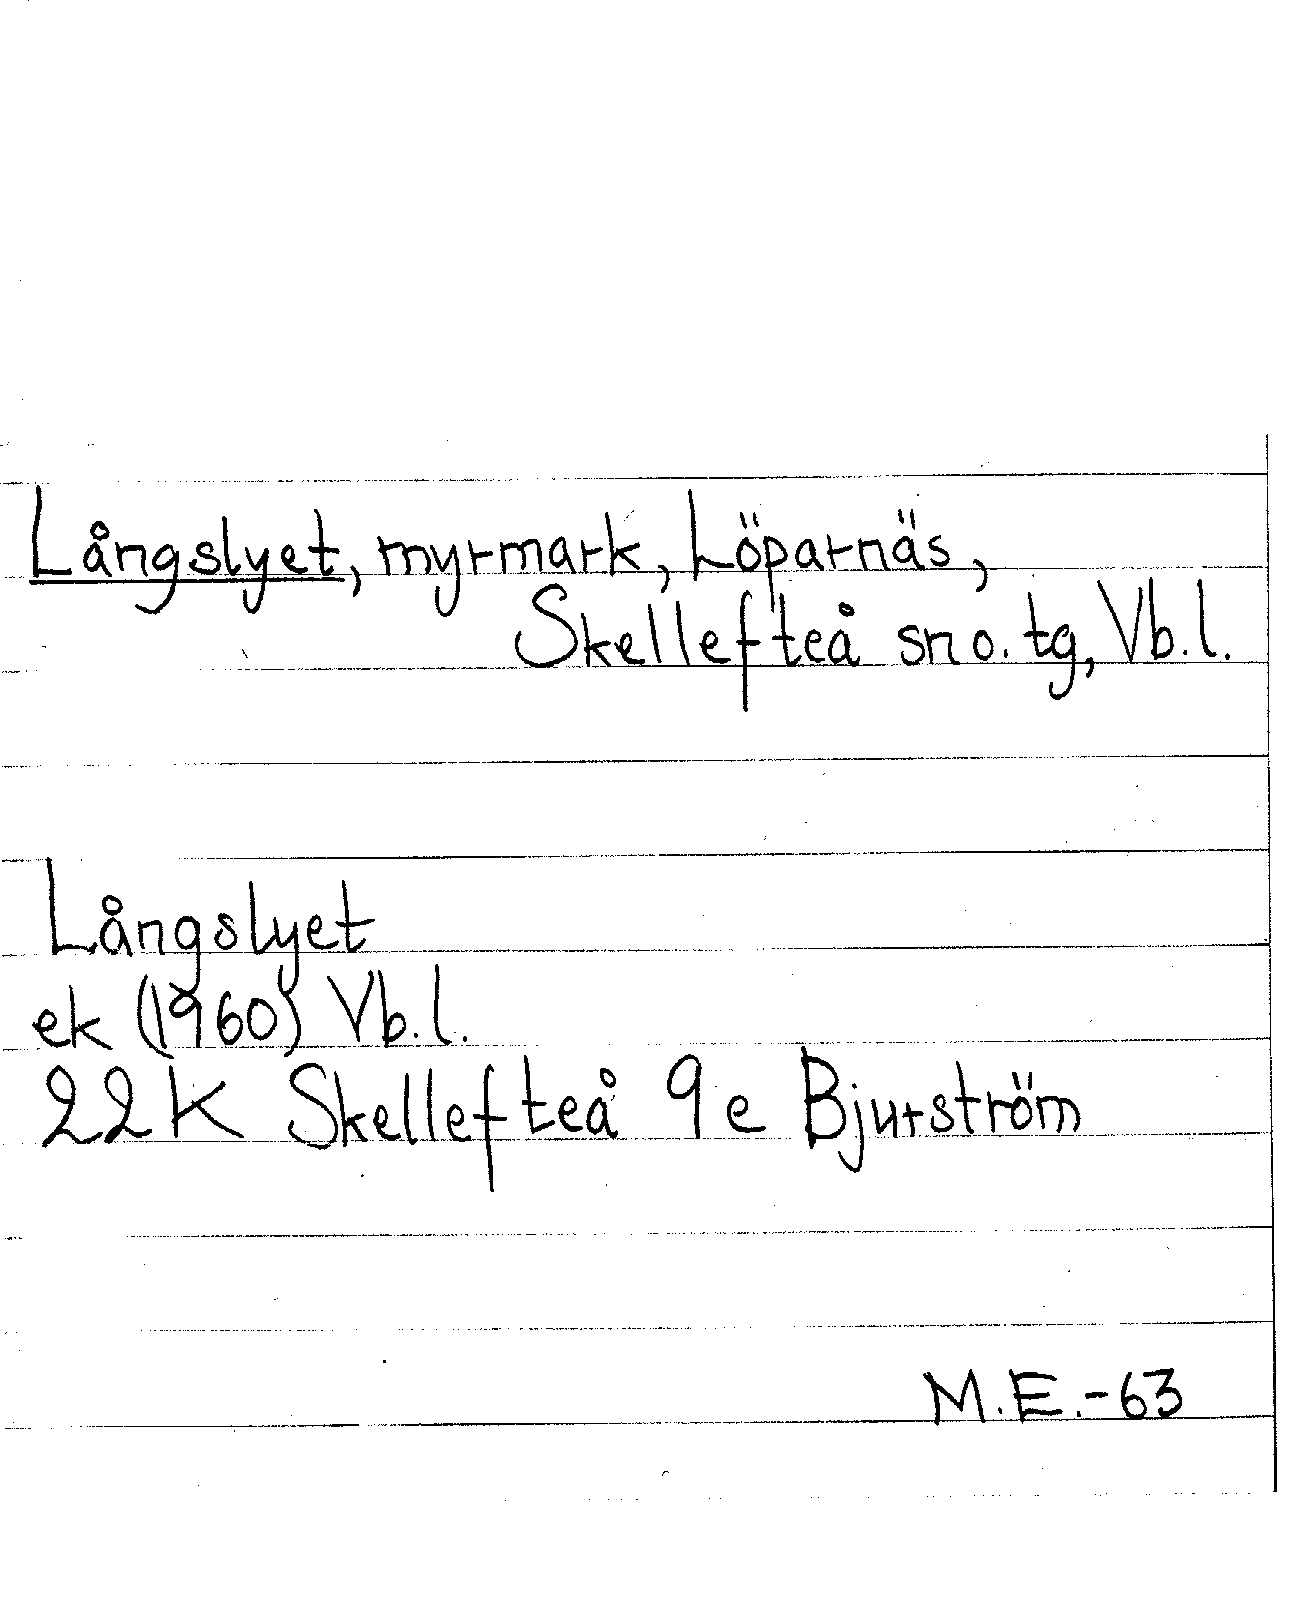 Långslyet, myrmark, Löparnäs,
Skellefteå sn o. tg, Vb.l.
Långslyet
ek (1960) Vb.l.
22K Skellefteå 9e Bjurström
M.E.-63